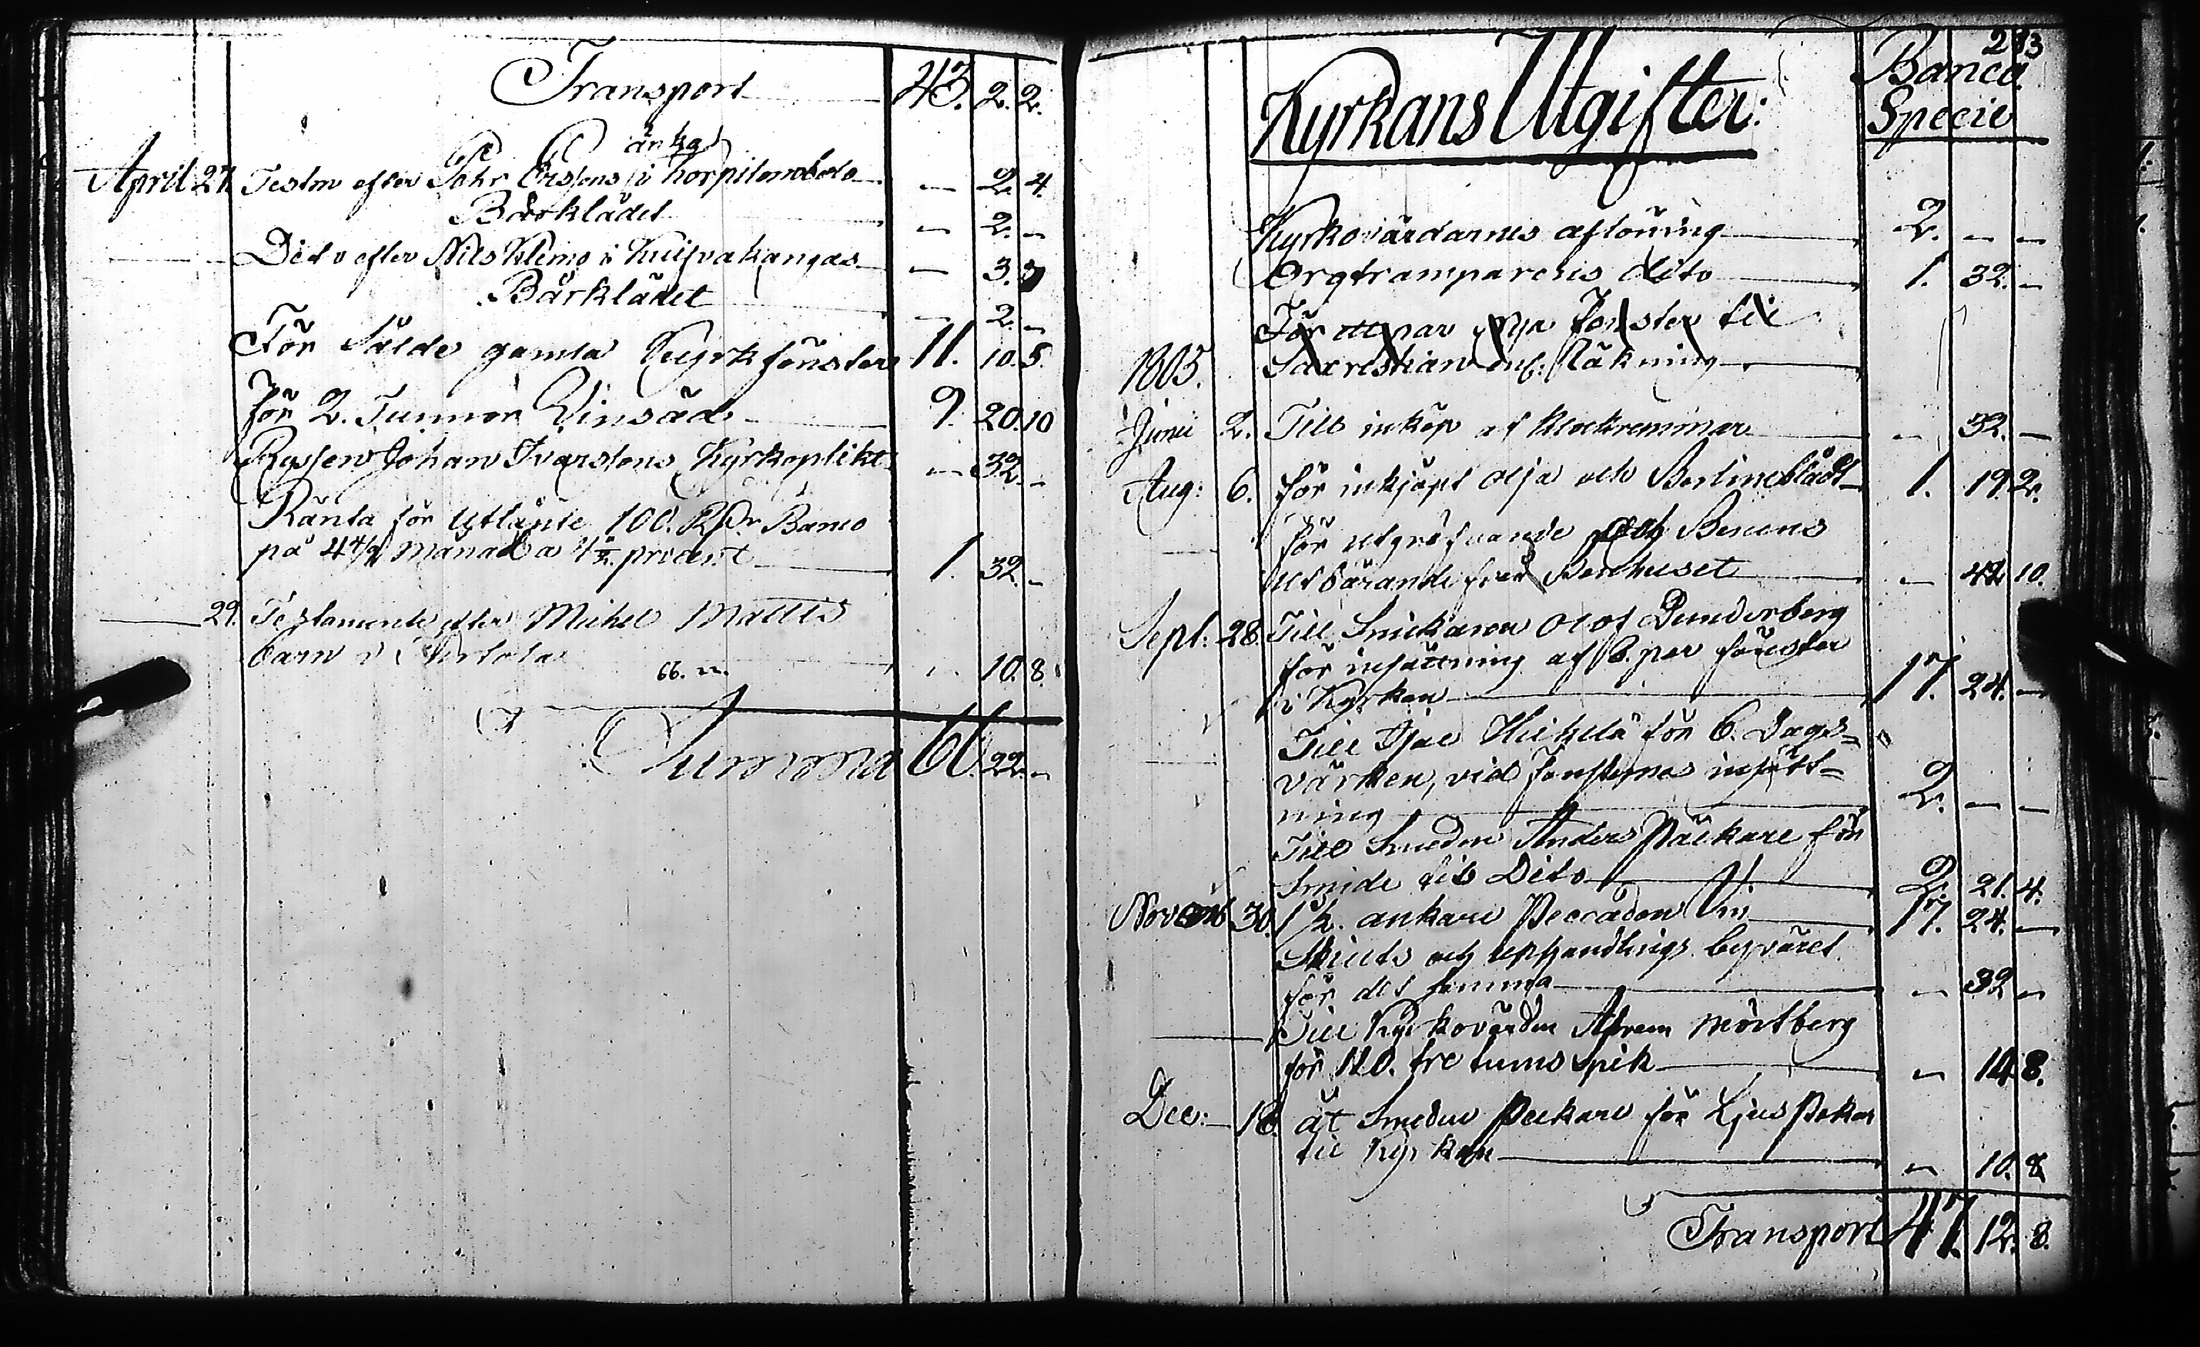 Transport 43. 2. 2.
änka
April 27. Testm efter Pehr Ersfons i Korpilombolo — 2. 4.
Bårklädet — 2. —
Dito efter Nils Klemo i Kuifvakangas — 3.
Bårklädet — 2. —
För Sålde gamla Kyrkfönster 11. 10. 5.
för 2. Tunnor Linsäd 9. 20. 10
Ryssen Johan Ivarsfons Kyrkoplikt — 32. —
Ränta för Utlånte 100. Rdr Banco
på 4 månad a procent 1. 32. —
29. Testamente efter Michel Mattis
barn i „ 10. 8.
66. 22.
Summa 66. 22. —
213
Kyrkans Utgifter: Banco
Specie
Kyrkovärdarnes aflöning 2. — —
Orgtramparens dito 1. 32. —
För ett par nya fönster til
Sacrestian enl. Räkning
1805.
Junii 2. Till inköp af klockremmar — 32. —
Aug: 6. för inköpt olja och Berlinerblått 1. 19. 2.
för utgräfvande och Benens
utbärande från Benhuset — 42. 10.
Sept: 28. Till Snickaren Olof Dunderberg
för infättning af 6. par fönster
i Kyrkan 17. 24. —
Till Hickilä för 6. Dags=
värken, vid fenfternas infätt=
ning 2. — —
Till Smeden Anders Päckare för
Smide til Dito 2. 21. 4.
Novemb 30. 1½. ankare Peccadou Vin 17. 24. —
Skiuts och upphandlings besväret
för det samma — 32 —
Till Kyrkovärden Abram Mörtberg
för 120. tre tums spik — 14. 8.
Dec: 18. åt Smeden Peckare för Ljus
til Kyrkan — 10. 8
Transport 47. 12. 8.